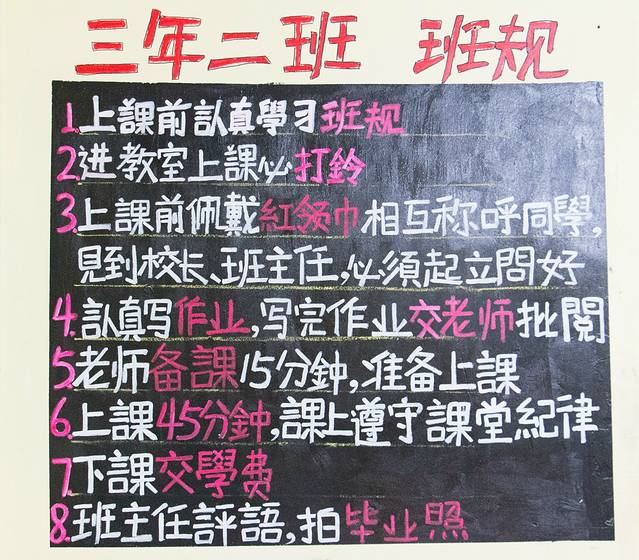 三年二班 班规
1.上課前認真學习班规
2.进教室上課必打鈴
3.上課前佩戴紅领巾相互称呼同學,
見到校长、班主任,必須起立問好
4.認真写作业,写完作业交老师批閱
5.老师备課15分鈡,准备上課
6.上課45分鐘,課上遵守課堂紀律
7.下課交學费
8.班主任評語,拍毕业照